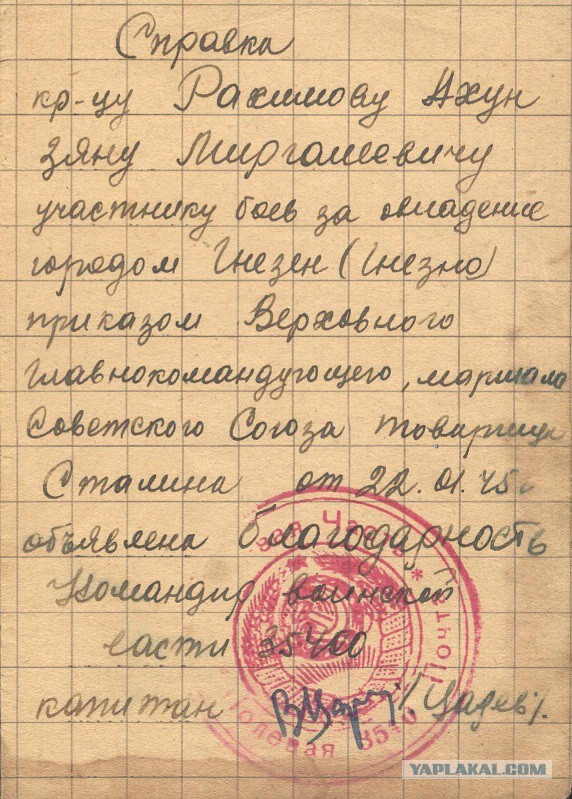 Справка
кр-цу Рахимову Ахун
зяну Миргалиевичу
участнику боев за овладение
городом Гнезен (Гнезно)
приказом Верховного
Главнокомандующего, маршала
Советского Союза товарища
Сталина от 22.01.45г
объявлена благодарность
Командир воинской
части 35400
капитан /Цадев/.
вая Часть * Почта
Полевая
YAPLAKAL.COM